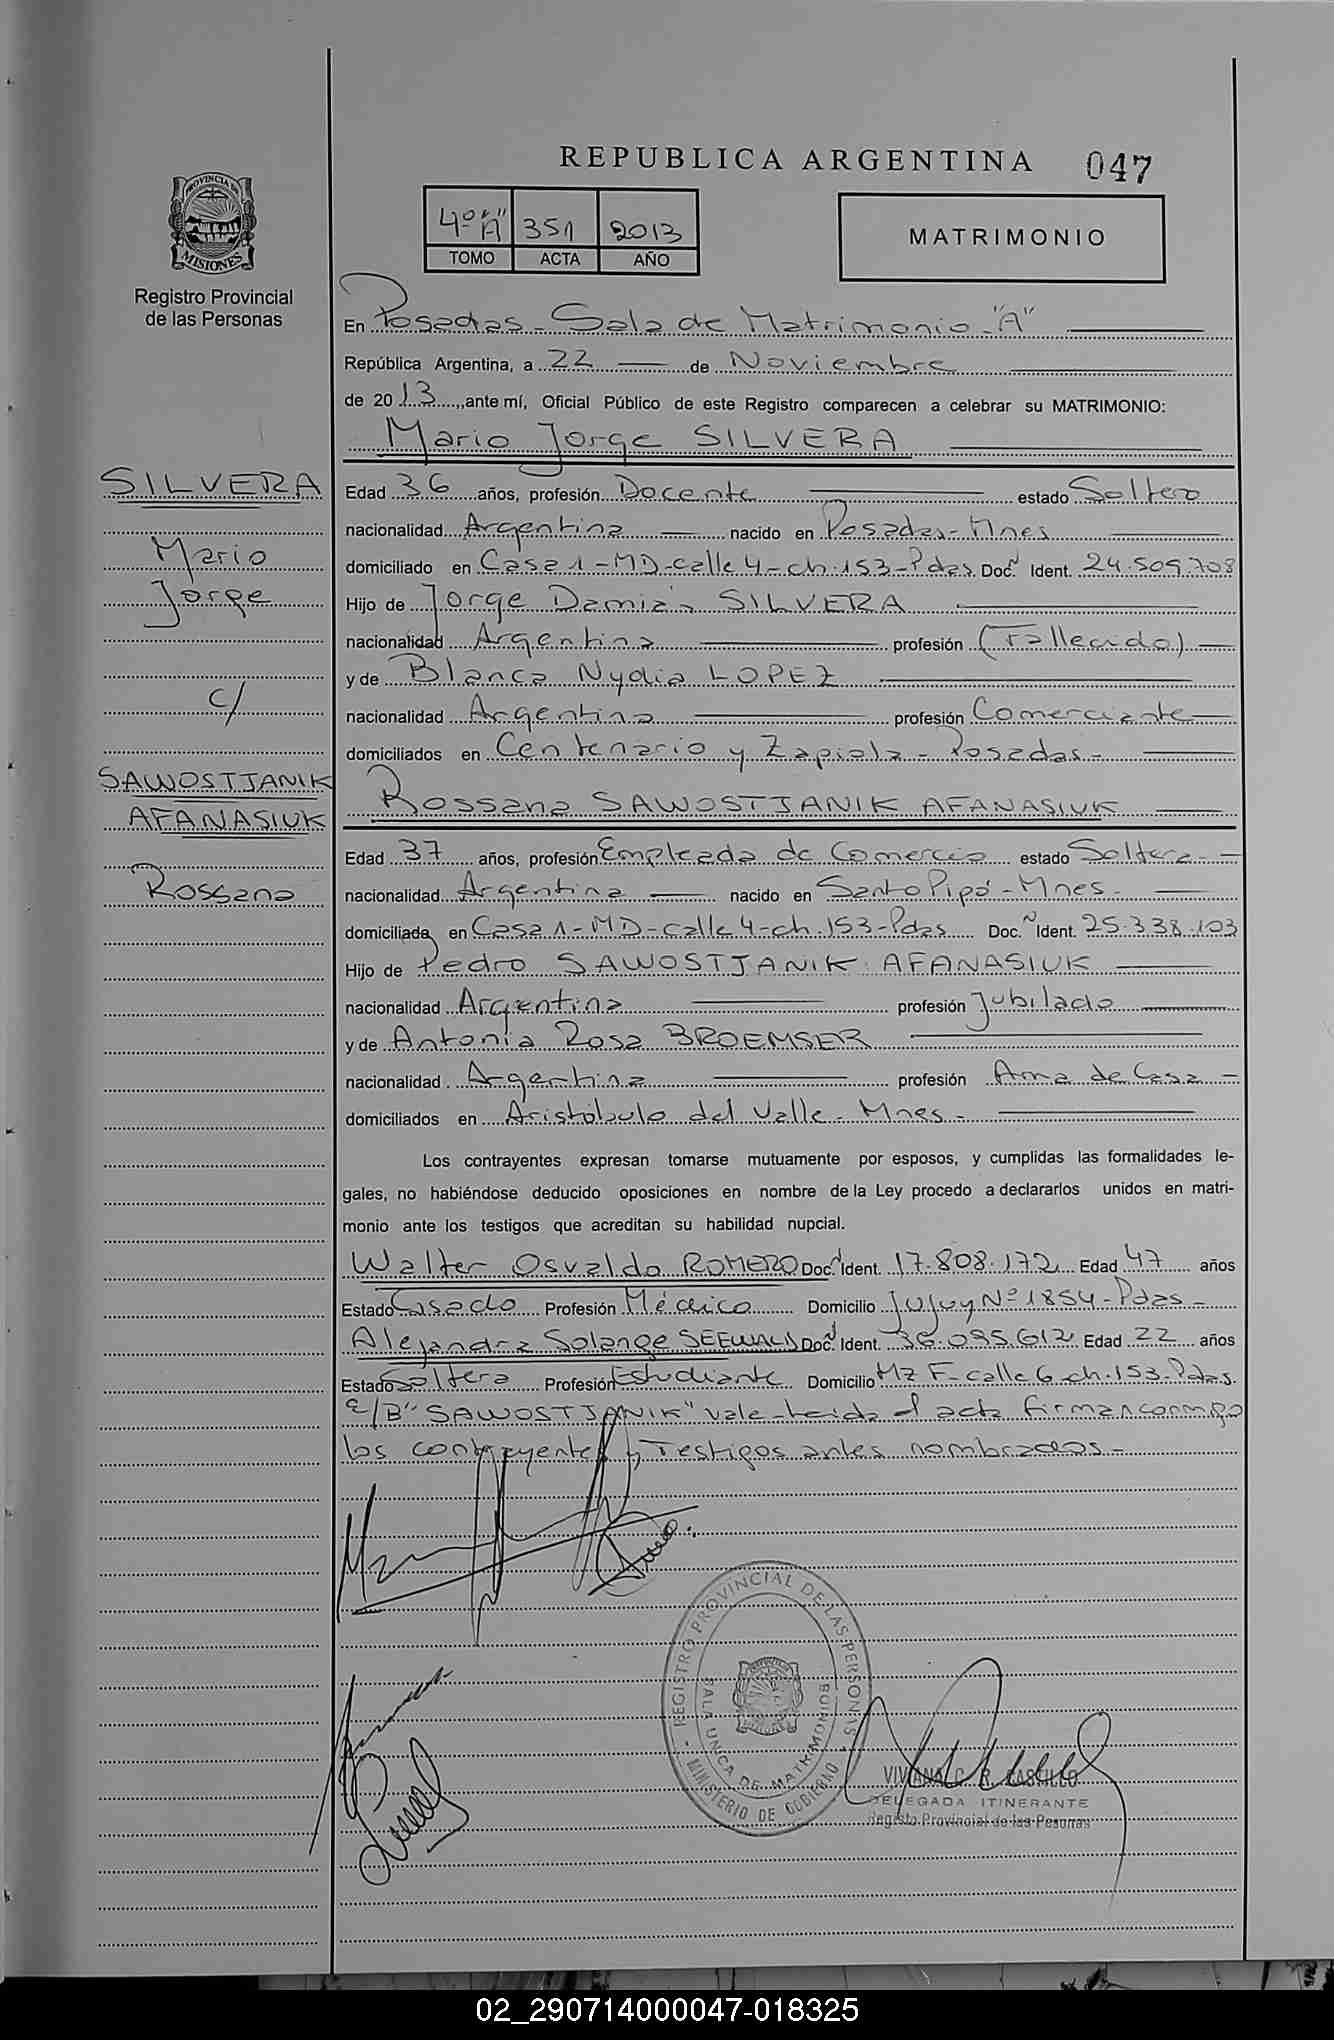 REPUBLICA ARGENTINA 047
PROVINCIA DE
MISIONES
Registro Provincial
de las Personas
4º "A" 351 2013
TOMO ACTA AÑO
MATRIMONIO
En Posadas - Sala de Matrimonio - "A"
República Argentina, a 22 de Noviembre
de 2013, ante mí, Oficial Público de este Registro comparecen a celebrar su MATRIMONIO:
Mario Jorge SILVERA
SILVERA
Mario
Jorge
c/
SAWOSTJANIK
AFANASIUK
Rossana
Edad 36 años, profesión Docente estado Soltero
nacionalidad Argentina nacido en Posadas - Mnes
domiciliado en Casa 1 - MD - calle 4 - ch. 153 - Pdas. Doc. N Ident. 24.509.708
Hijo de Jorge Damián SILVERA
nacionalidad Argentina profesión (Fallecido)
y de Blanca Nydia LOPEZ
nacionalidad Argentina profesión Comerciante
domiciliados en Centenario y Zapiola - Posadas -
Rossana SAWOSTJANIK AFANASIUK
Edad 37 años, profesión Empleada de Comercio estado Soltera -
nacionalidad Argentina nacido en Santo Pipó - Mnes -
domiciliada en Casa 1 - MD - calle 4 - ch. 153 - Pdas Doc. N Ident. 25.338.103
Hijo de Pedro SAWOSTJANIK AFANASIUK
nacionalidad Argentina profesión Jubilado
y de Antonia Rosa BROEMSER
nacionalidad Argentina profesión Ama de Casa -
domiciliados en Aristóbulo del Valle - Mnes -
Los contrayentes expresan tomarse mutuamente por esposos, y cumplidas las formalidades le-
gales, no habiéndose deducido oposiciones en nombre de la Ley procedo a declararlos unidos en matri-
monio ante los testigos que acreditan su habilidad nupcial.
Walter Osvaldo ROMERO Doc. N Ident. 17.808.172 Edad 47 años
Estado Casado Profesión Médico Domicilio Jujuy Nº 1854 - Pdas -
Alejandra Solange Doc. N Ident. 36.095.612 Edad 22 años
Estado Soltera Profesión Estudiante Domicilio Mz F - calle 6 ch. 153 - Pdas.
E/B "SAWOSTJANIK" vale - leida el acta firman conmigo
los contrayentes y Testigos antes nombrados -
REGISTRO PROVINCIAL DE LAS PERSONAS
SALA UNICA DE MATRIMONIOS
- MINISTERIO DE GOBIERNO -
VIVIANA C. R. CASTILLO
DELEGADA ITINERANTE
Registo Provincial de las Pesonas
02_290714000047-018325